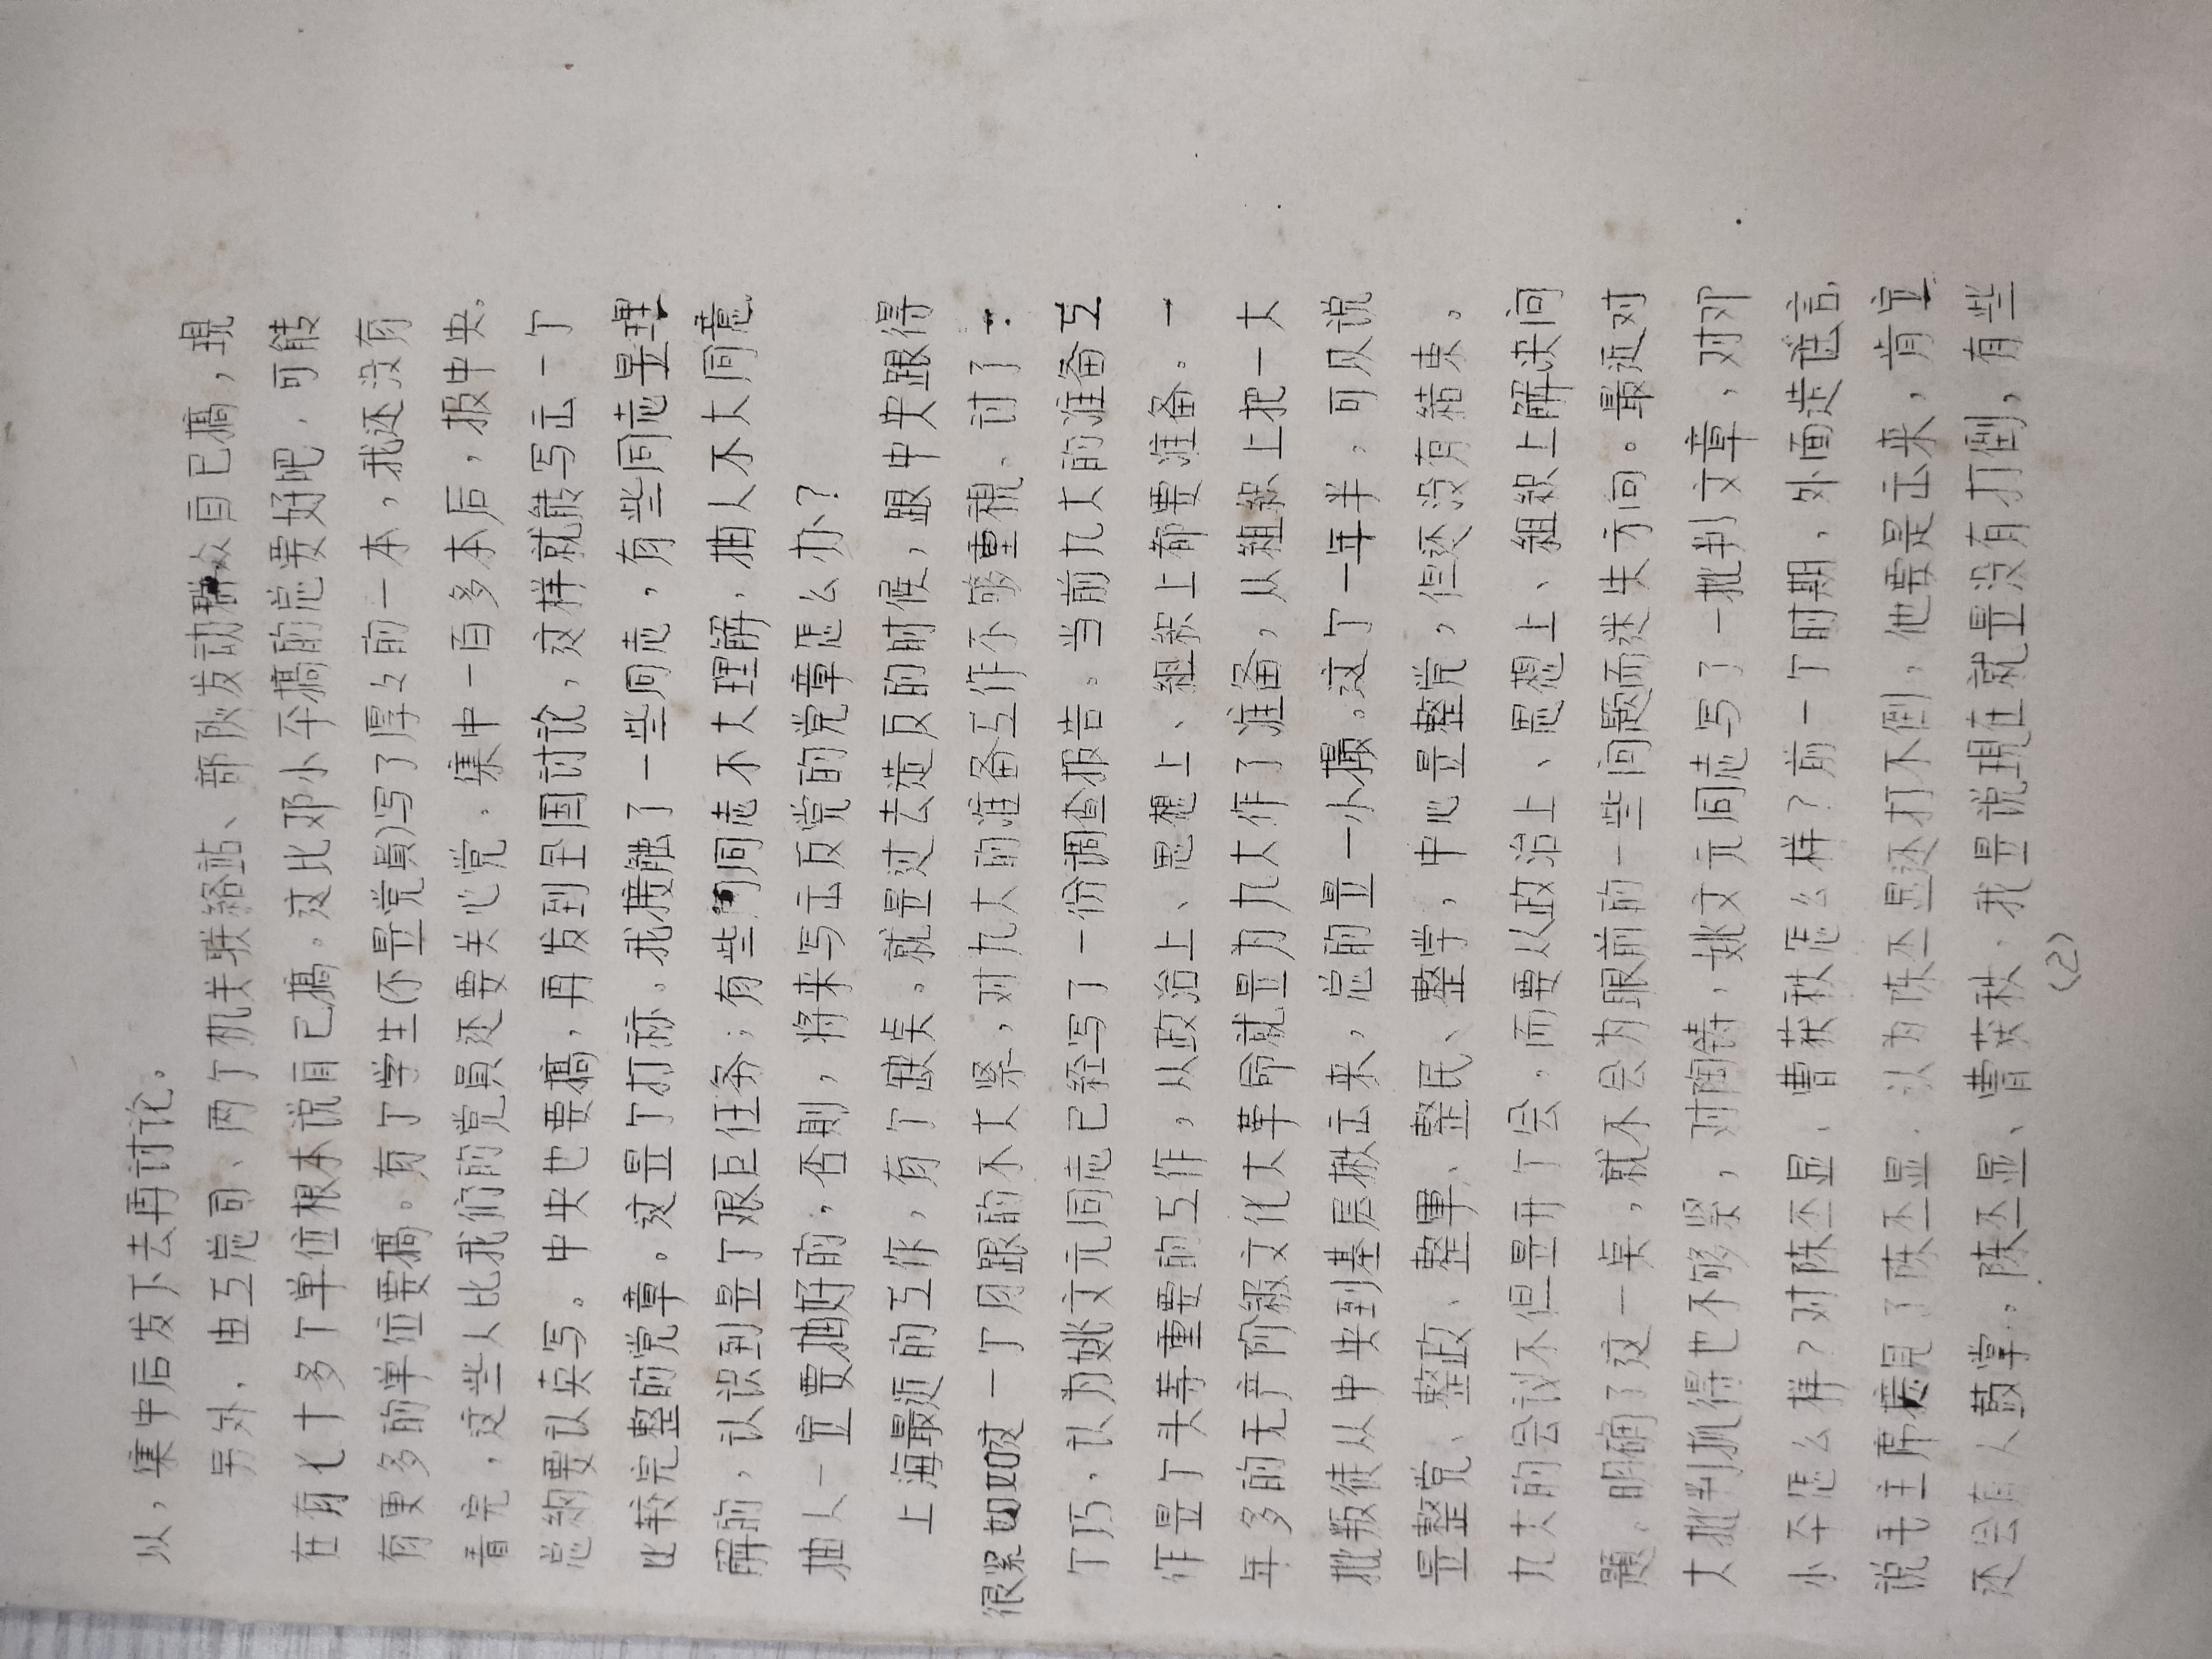 以，集中后发下去再讨论。
另外，由工总司、两个机关联络站、部队发动群众自己搞，現
在有七十多个单位根本说自己搞。这比邓小平搞的总要好吧，可能
有更多的单位要搞。有个学生(不是党員)写了厚々的一本，我还没有
看完，这些人比我们的党員还要关心党。集中一百多本后，报中央。
总纲要认真写。中央也要搞，再发到全国讨论，这样就能写出一个
比较完整的党章。这是个打祘。我接触了一些同志，有些同志是理
解的，认识到是个艰巨任务；有些同志不大理解，抽人不大同意
抽人一定要抽好的，否則，将来写出反党的党章怎么办？
上海最近的工作，有个缺点。就是过去造反的时候，跟中央跟得
很紧如如这一个月跟的不大紧，对九大的准备工作不够重視。讨了一
个巧，认为姚文元同志已经写了一份调查报告。当前九大的准备工
作是个头等重要的工作，从政治上、思想上、组织上都要准备。一
年多的无产阶级文化大革命就是为九大作了准备，从组织上把一大
批叛徒从中央到基层揪出来，总的是一小撮。这个一年半，可以说
是整党、整政、整軍、整民、整学，中心是整党，但还没有結束。
九大的会议不但是开个会，而要从政治上、思想上、组织上解决问
题。明确了这一点，就不会为眼前的一些问题而迷失方向。最近对
大批判抓得也不够紧，对陶铸，姚文元同志写了一批判文章，对邓
小平怎么样？对陈丕显、曹荻秋怎么样？前一个时期，外面造谣言，
说毛主席接見了陈丕显，认为陈丕显还打不倒，他要是出来，肯定
还会有人鼓掌。陈丕显、曹荻秋，我是说現在就是没有打倒，有些
(2)